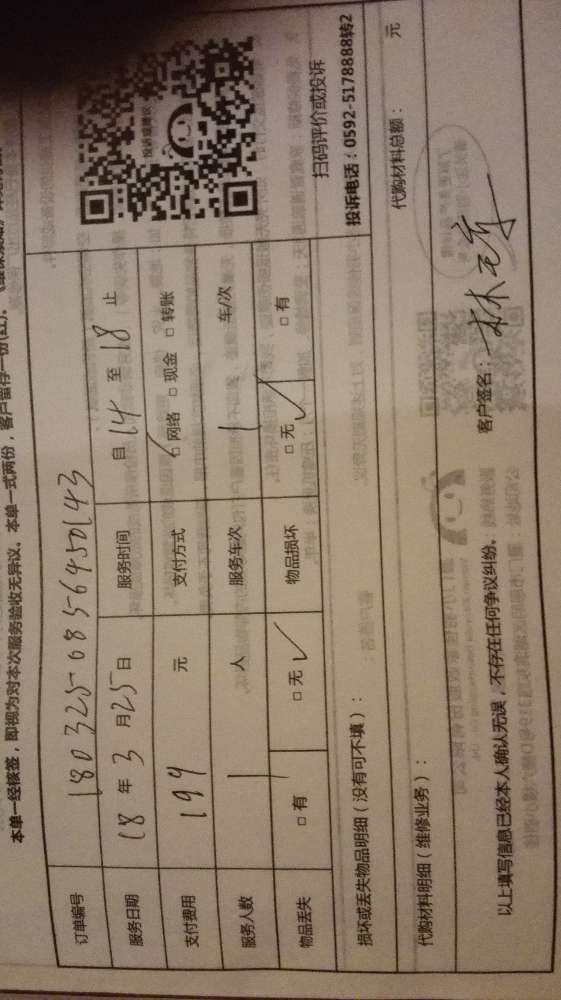 本单一经核签，即视为对本次服务验收无异议。本单一式两份，客户留存一份(红)，
订单编号 180325 0856450143
服务日期 18年3月25日 服务时间 自14至18止
支付费用 199 元 支付方式 □网络 □现金 □转账
服务人数 1 人 服务车次 1 车/次
物品丢失 □有 □无✓ 物品损坏 □无✓ □有
投诉或建议
扫码评价或投诉
投诉电话：0592-5178888转2
损坏或丢失物品明细（没有可不填）：
代购材料明细（维修业务）： 代购材料总额： 元
以上填写信息已经本人确认无误，不存在任何争议纠纷。 客户签名：